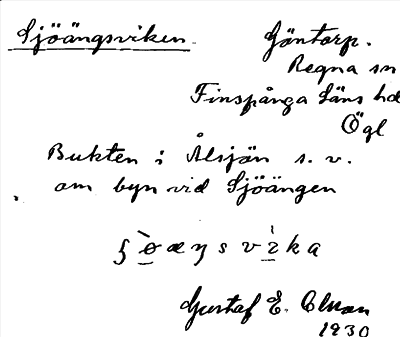 Sjöängsviken
Göntorp.
Regna sn
Finspånga läns hd
Ögl
Bukten i Ålsjön s. v.
om byn vid Sjöängen
Gustaf E.
1930